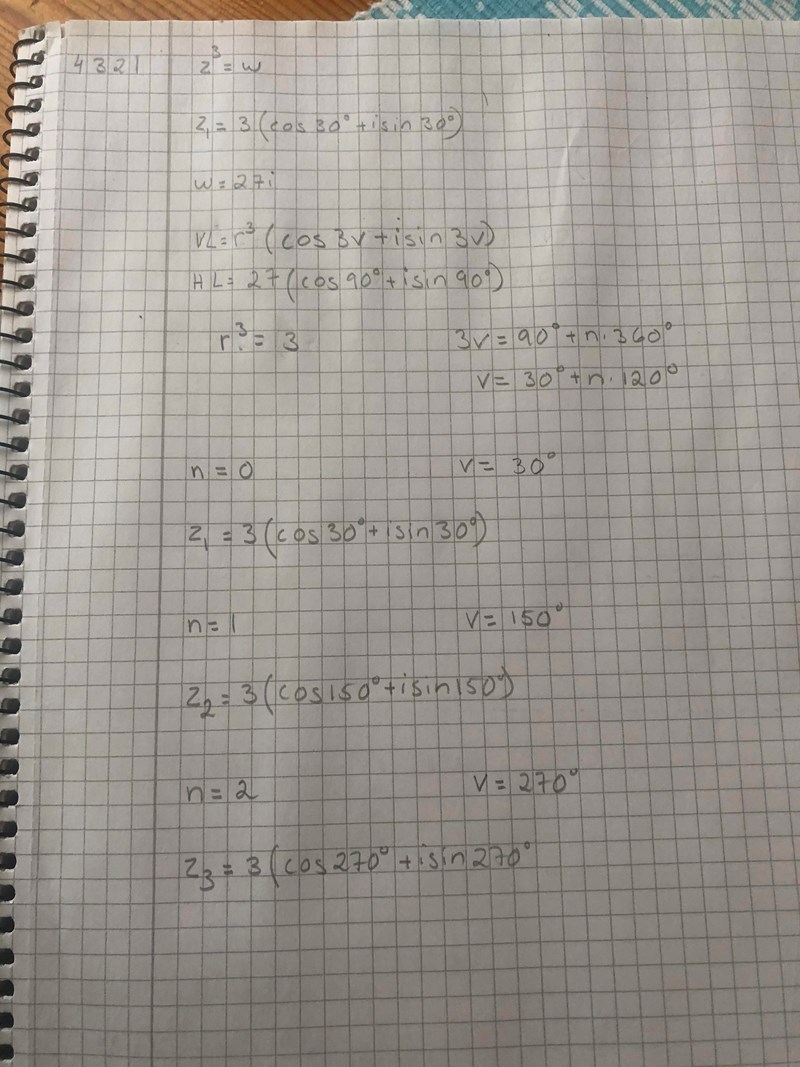 4321 z³ = w
z₁ = 3 (cos 30° + i sin 30°)
w = 27i
VL = r³ (cos 3v + i sin 3v)
HL = 27 (cos 90° + i sin 90°)
r³ = 3 3v = 90° + n · 360°
v = 30° + n · 120°
n = 0 v = 30°
z₁ = 3 (cos 30° + i sin 30°)
n = 1 v = 150°
z₂ = 3 (cos 150° + i sin 150°)
n = 2 v = 270°
z₃ = 3 (cos 270° + i sin 270°